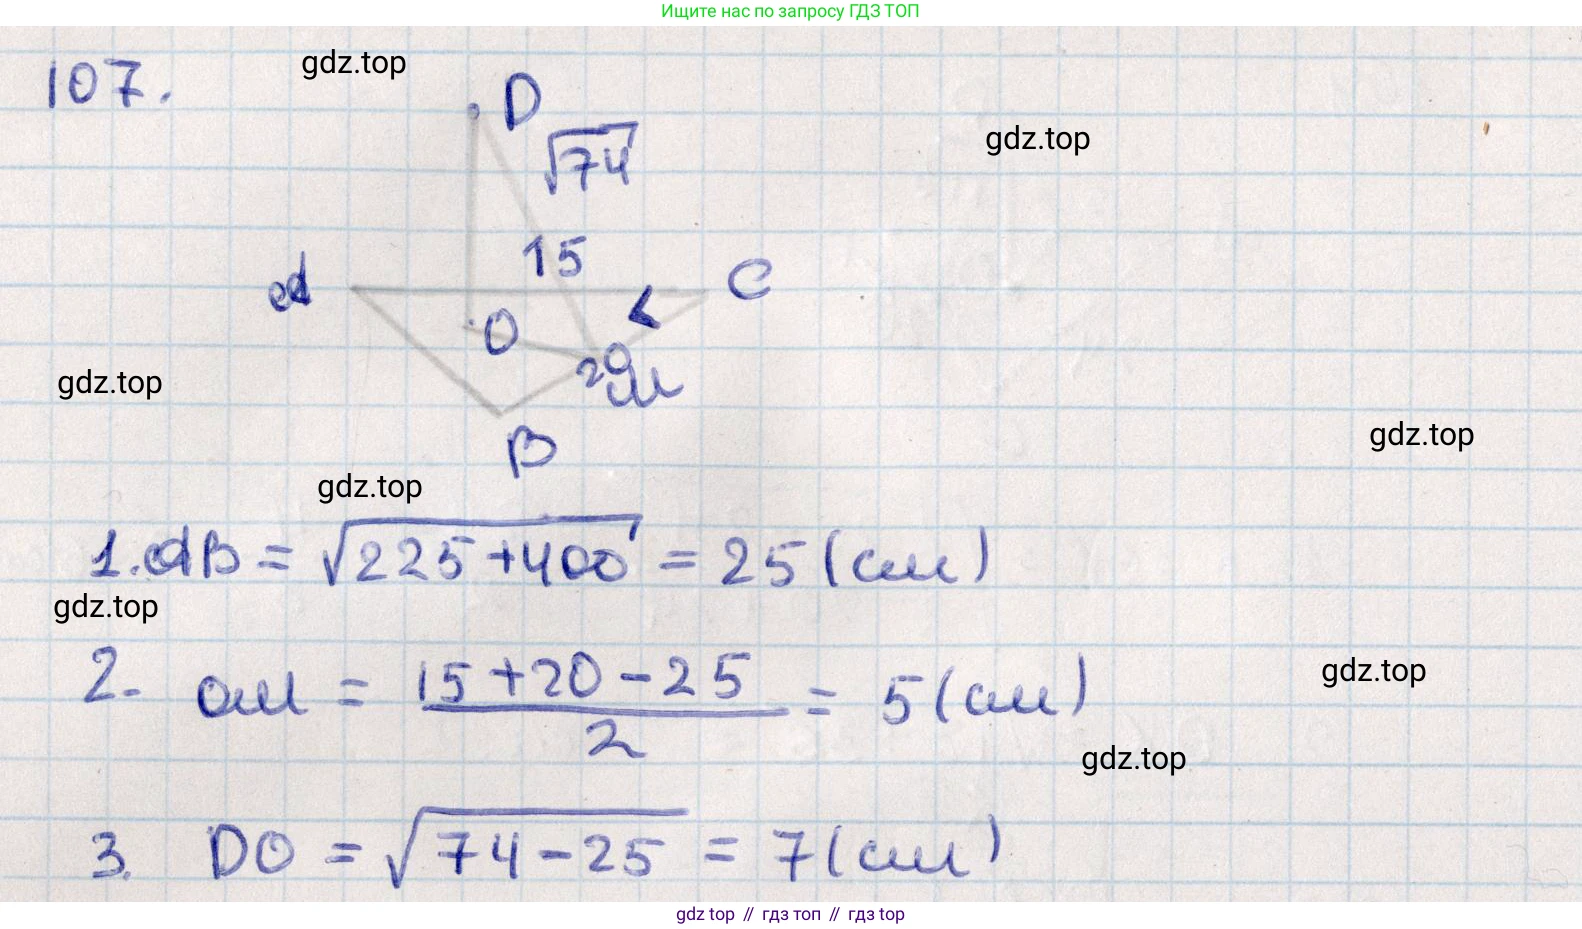 Ищите нас по запросу ГДЗ ТОП
107.
gdz.top
D
√74
gdz.top
15
A
C
O
20
M
gdz.top
B
gdz.top
gdz.top
1. AB = √225+400 = 25 (см)
gdz.top
2. OM = 15+20-25 / 2 = 5 (см)
gdz.top
gdz.top
3. DO = √74-25 = 7 (см)
gdz top // гдз топ // gdz top